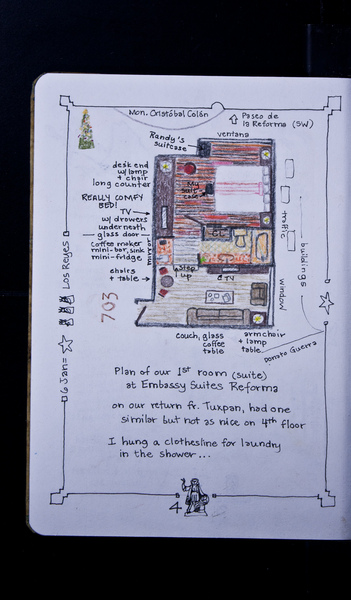 Mon. Cristóbal Colón
Paseo de
la Reforma (SW)
ventana
Randy's
suitcase
desk end
w/ lamp
+ chair
long counter
My
suit
case
REALLY COMFY
BED!
TV
w/ drawers
underneath
glass door
coffee maker
mini-bar, sink
mini-fridge
mirror
chairs
+ table
step
up
TV
traffic
buildings
window
couch, glass
coffee
table
armchair
+ lamp
table
Donato Guerra
703
Los Reyes
6 Jan=
Plan of our 1st room (suite)
at Embassy Suites Reforma
on our return fr. Tuxpan, had one
similar but not as nice on 4th floor
I hung a clothesline for laundry
in the shower...
4